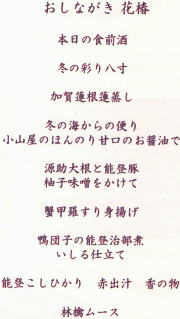 おしながき 花椿
本日の食前酒
冬の彩り八寸
加賀蓮根蓮蒸し
冬の海からの便り
小山屋のほんのり甘口のお醤油で
源助大根と能登豚
柚子味噌をかけて
蟹甲羅すり身揚げ
鴨団子の能登治部煮
いしる仕立て
能登こしひかり 赤出汁 香の物
林檎ムース